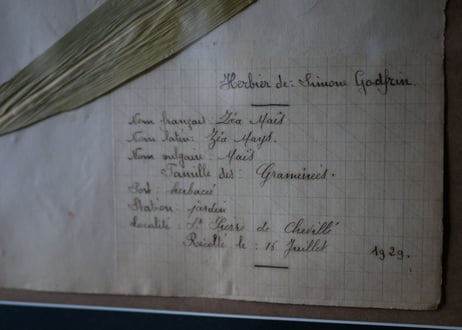 Herbier de: Simone Godfrin
Nom français: Zéa Maïs
Nom latin: Zéa Mays.
Nom vulgaire: Maïs
Famille des: Graminées.
Port: herbacé
Station: jardin
Localité: St Pierre de Chevillé
Récolté le: 15 Juillet 1929.